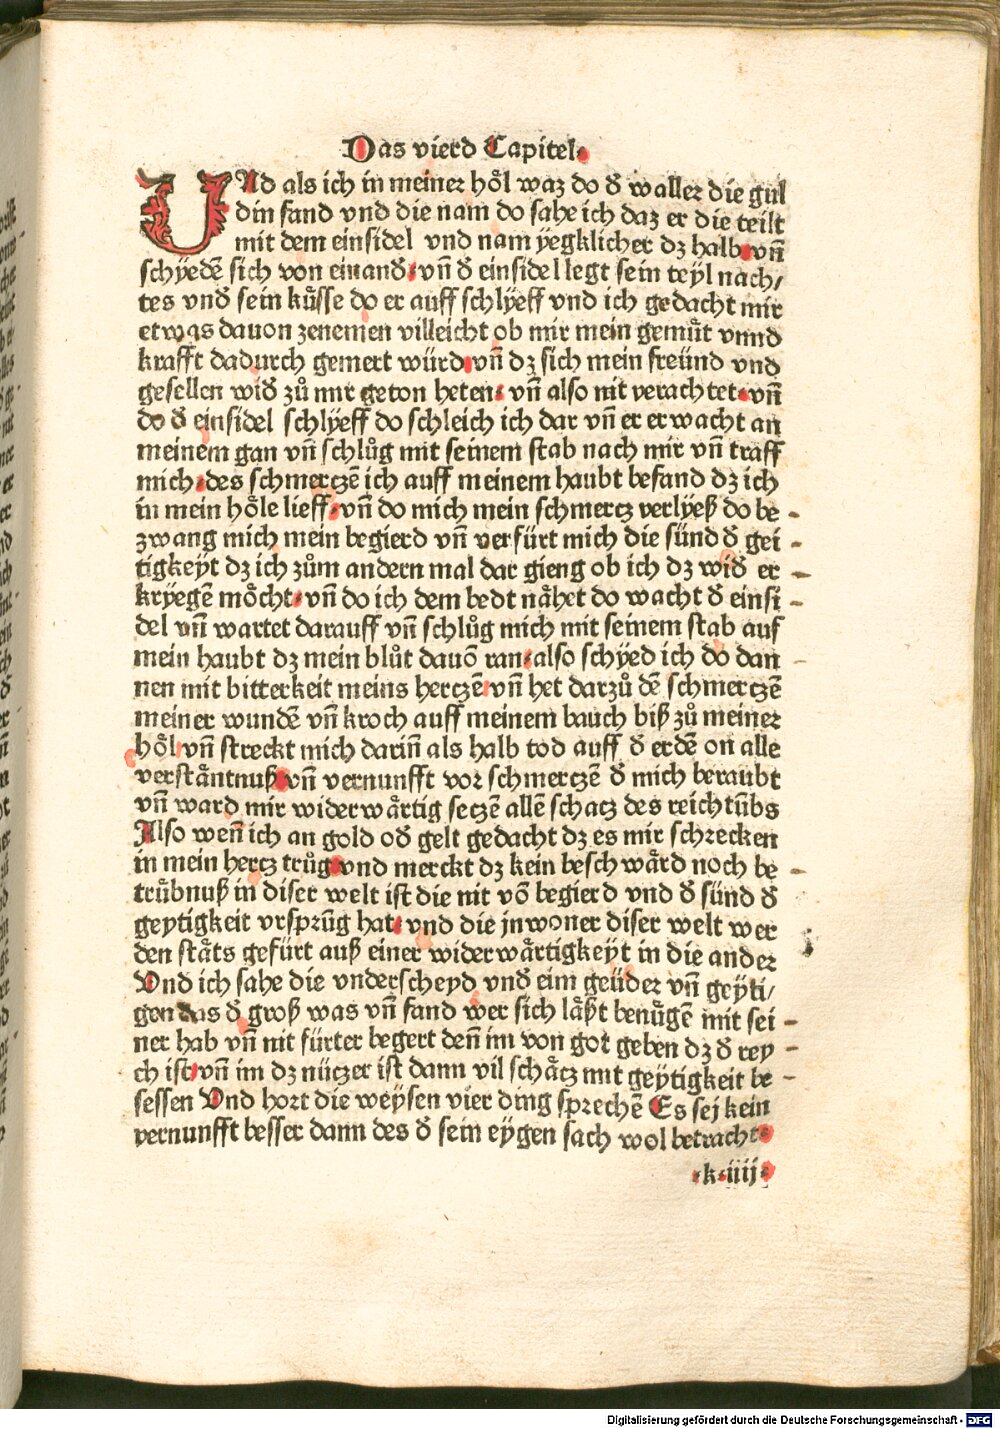 Das vierd Capitel.
UNd als ich in meiner hoͤl waz do đ waller die gul
din fand vnd die nam do sahe ich daz er die teilt
mit dem einsidel vnd nam ÿegklicher dz halb. vn̄
schÿedē sich von einanđ. vn̄ đ einsidel legt sein teÿl nach/
tes vnđ sein kuͤsse do er auff schlÿeff vnd ich gedacht mir
etwas dauon zenemen villeicht ob mir mein gemuͤt vnnd
krafft dadurch gemert würd. vn̄ dz sich mein freünd vnd
gesellen wiđ zuͦ mir geton heten. vn̄ also nit verachtet. vn̄
do đ einsidel schlÿeff do schleich ich dar vn̄ er erwacht an
meinem gan vn̄ schluͦg mit seinem stab nach mir vn̄ traff
mich. des schmerczē ich auff meinem haubt befand dz ich
in mein hoͤle lieff. vn̄ do mich mein schmercz verlÿeß do be
zwang mich mein begierd vn̄ verfürt mich die sünd đ gei
tigkeyt dz ich zuͦm andern mal dar gieng ob ich dz wiđ er
krÿegē moͤcht. vn̄ do ich dem bedt naͤhet do wacht đ einsi
del vn̄ wartet darauff vn̄ schluͦg mich mit seinem stab auf
mein haubt dz mein bluͦt dauō ran. also schÿed ich do dan
nen mit bitterkeit meins herczē vn̄ het darzuͦ dē schmerczē
meiner wundē vn̄ kroch auff meinem bauch biß zuͦ meiner
hoͤl vn̄ streckt mich darin̄ als halb tod auff đ erdē on alle
verstaͤntnuß. vn̄ vernunfft vor schmerczē đ mich beraubt
vn̄ ward mir widerwaͤrtig seczē allē schacz des reichtūbs
Also wen̄ ich an gold ođ gelt gedacht dz es mir schrecken
in mein hercz truͦg. vnd merckt dz kein beschwaͤrd noch be
truͤbnuß in diser welt ist die nit vō begierd vnd đ sünd đ
geytigkeit vrsprūg hat. vnd die jnwoner diser welt wer
den staͤts gefürt auß einer widerwaͤrtigkeyt in die ander
Vnd ich sahe die vnderscheyd vnđ eim geüder vn̄ geÿti/
gen das đ groß was vn̄ fand wer sich laͤßt benuͤgē mit sei
ner hab vn̄ nit fürter begert den̄ im von got geben dz đ rey
ch ist. vn̄ im dz nüczer ist dann vil schaͤcz mit geÿtigkeit be
sessen Vnd hort die weÿsen vier ding sprechē Es sej kein
vernunfft besser dann des đ sein eÿgen sach wol betracht.
.k.iiij.
Digitalisierung gefördert durch die Deutsche Forschungsgemeinschaft - DFG